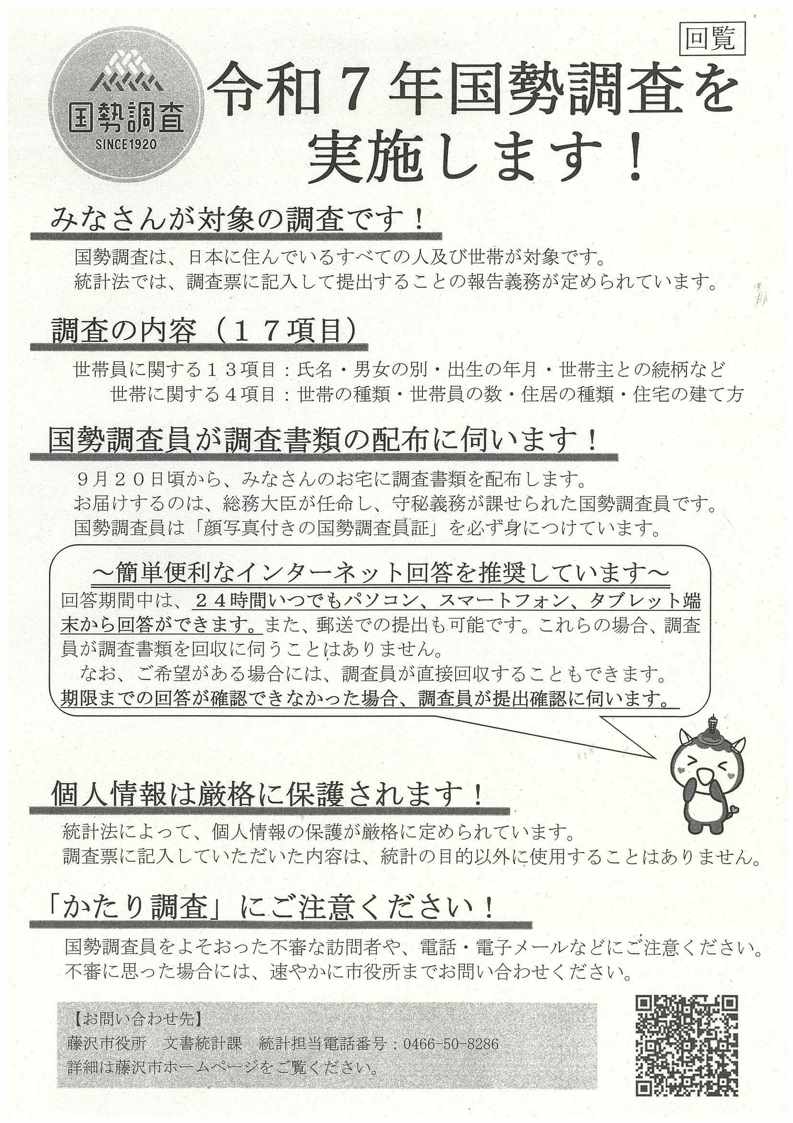 回覧
国勢調査
SINCE1920
令和７年国勢調査を
実施します！
みなさんが対象の調査です！
国勢調査は、日本に住んでいるすべての人及び世帯が対象です。
統計法では、調査票に記入して提出することの報告義務が定められています。
調査の内容（１７項目）
世帯員に関する１３項目：氏名・男女の別・出生の年月・世帯主との続柄など
世帯に関する４項目：世帯の種類・世帯員の数・住居の種類・住宅の建て方
国勢調査員が調査書類の配布に伺います！
９月２０日頃から、みなさんのお宅に調査書類を配布します。
お届けするのは、総務大臣が任命し、守秘義務が課せられた国勢調査員です。
国勢調査員は「顔写真付きの国勢調査員証」を必ず身につけています。
～簡単便利なインターネット回答を推奨しています～
回答期間中は、２４時間いつでもパソコン、スマートフォン、タブレット端
末から回答ができます。また、郵送での提出も可能です。これらの場合、調査
員が調査書類を回収に伺うことはありません。
なお、ご希望がある場合には、調査員が直接回収することもできます。
期限までの回答が確認できなかった場合、調査員が提出確認に伺います。
個人情報は厳格に保護されます！
統計法によって、個人情報の保護が厳格に定められています。
調査票に記入していただいた内容は、統計の目的以外に使用することはありません。
「かたり調査」にご注意ください！
国勢調査員をよそおった不審な訪問者や、電話・電子メールなどにご注意ください。
不審に思った場合には、速やかに市役所までお問い合わせください。
【お問い合わせ先】
藤沢市役所　文書統計課　統計担当電話番号：0466-50-8286
詳細は藤沢市ホームページをご覧ください。